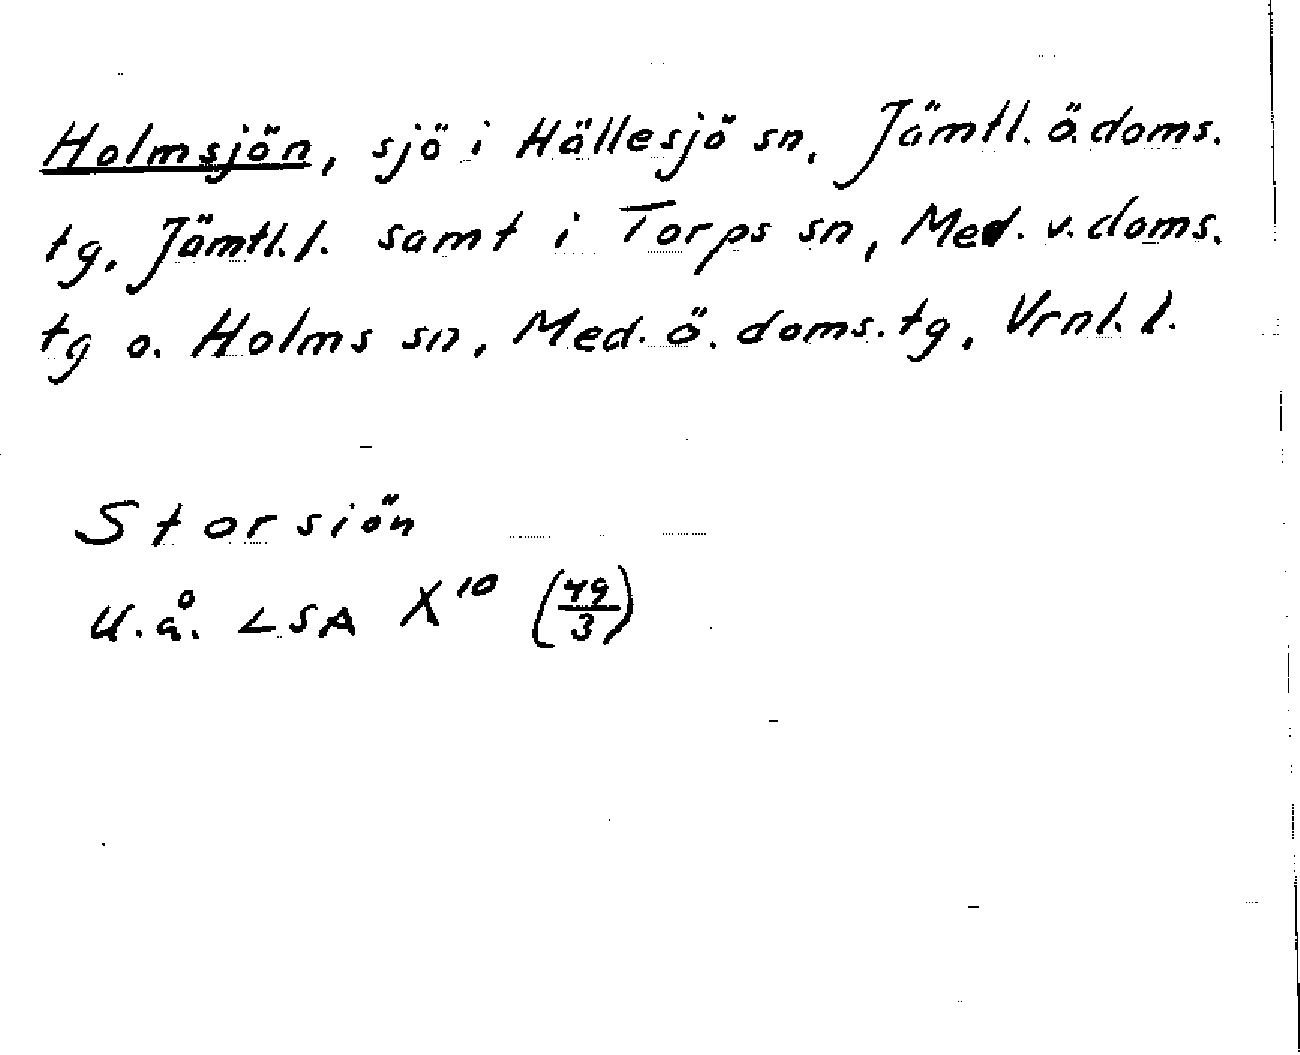 Holmsjön, sjö i Hällesjö sn, Jämtl. ö. doms.
tg, Jämtl. l. samt i Torps sn, Med. v. doms.
tg o. Holms sn, Med. ö. doms. tg, Vrnl. l.
Storsiön
U. å. LSA X¹⁰ (49/3)